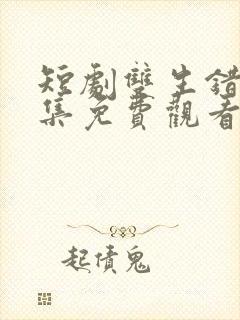 短劇雙生錯
集免費觀看
起債鬼